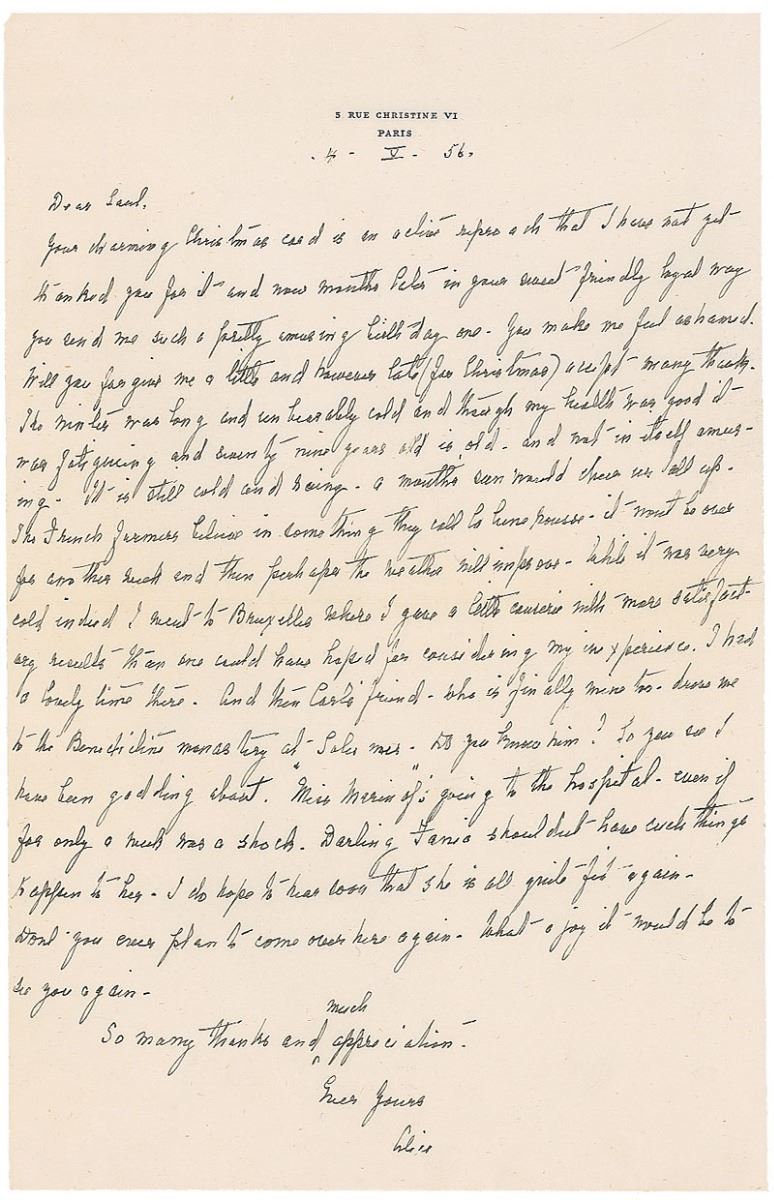 5 RUE CHRISTINE VI
PARIS
. 4 - V - 56.
Dear Saul,
Your charming Christmas card is an active reproach that I have not yet
thanked you for it and now months later in your sweet friendly loyal way
you send me such a pretty amusing birthday one - You make me feel ashamed.
Will you forgive me a little and however late (for Christmas) accept many thanks.
The winter was long and unbearably cold and though my health was good it
was fatiguing and seventy nine years old is old - and not in itself amus-
ing - It is still cold and - a months sun would cheer us all up.
The French farmers believe in something they call la lune rousse - it must be over
for another week and then perhaps the weather will improve - While it was very
cold indeed I went to Bruxelles where I gave a little causerie with more satisfact-
ory results than one could have hoped for considering my inexperience. I had
a lovely time there. And then Carl's friend - who is finally mine too - drove me
to the Benedictine monastery at Solesmes - Do you know him? So you see I
have been gadding about. "Miss Marinoff"'s going to the hospital - even if
for only a week was a shock. Darling Fania shouldnt have such things
happen to her - I do hope to hear soon that she is all quite fit again -
Dont you ever plan to come over here again - What a joy it would be to
see you again -
So many thanks and ^ much appreciation -
Ever Yours
Alice